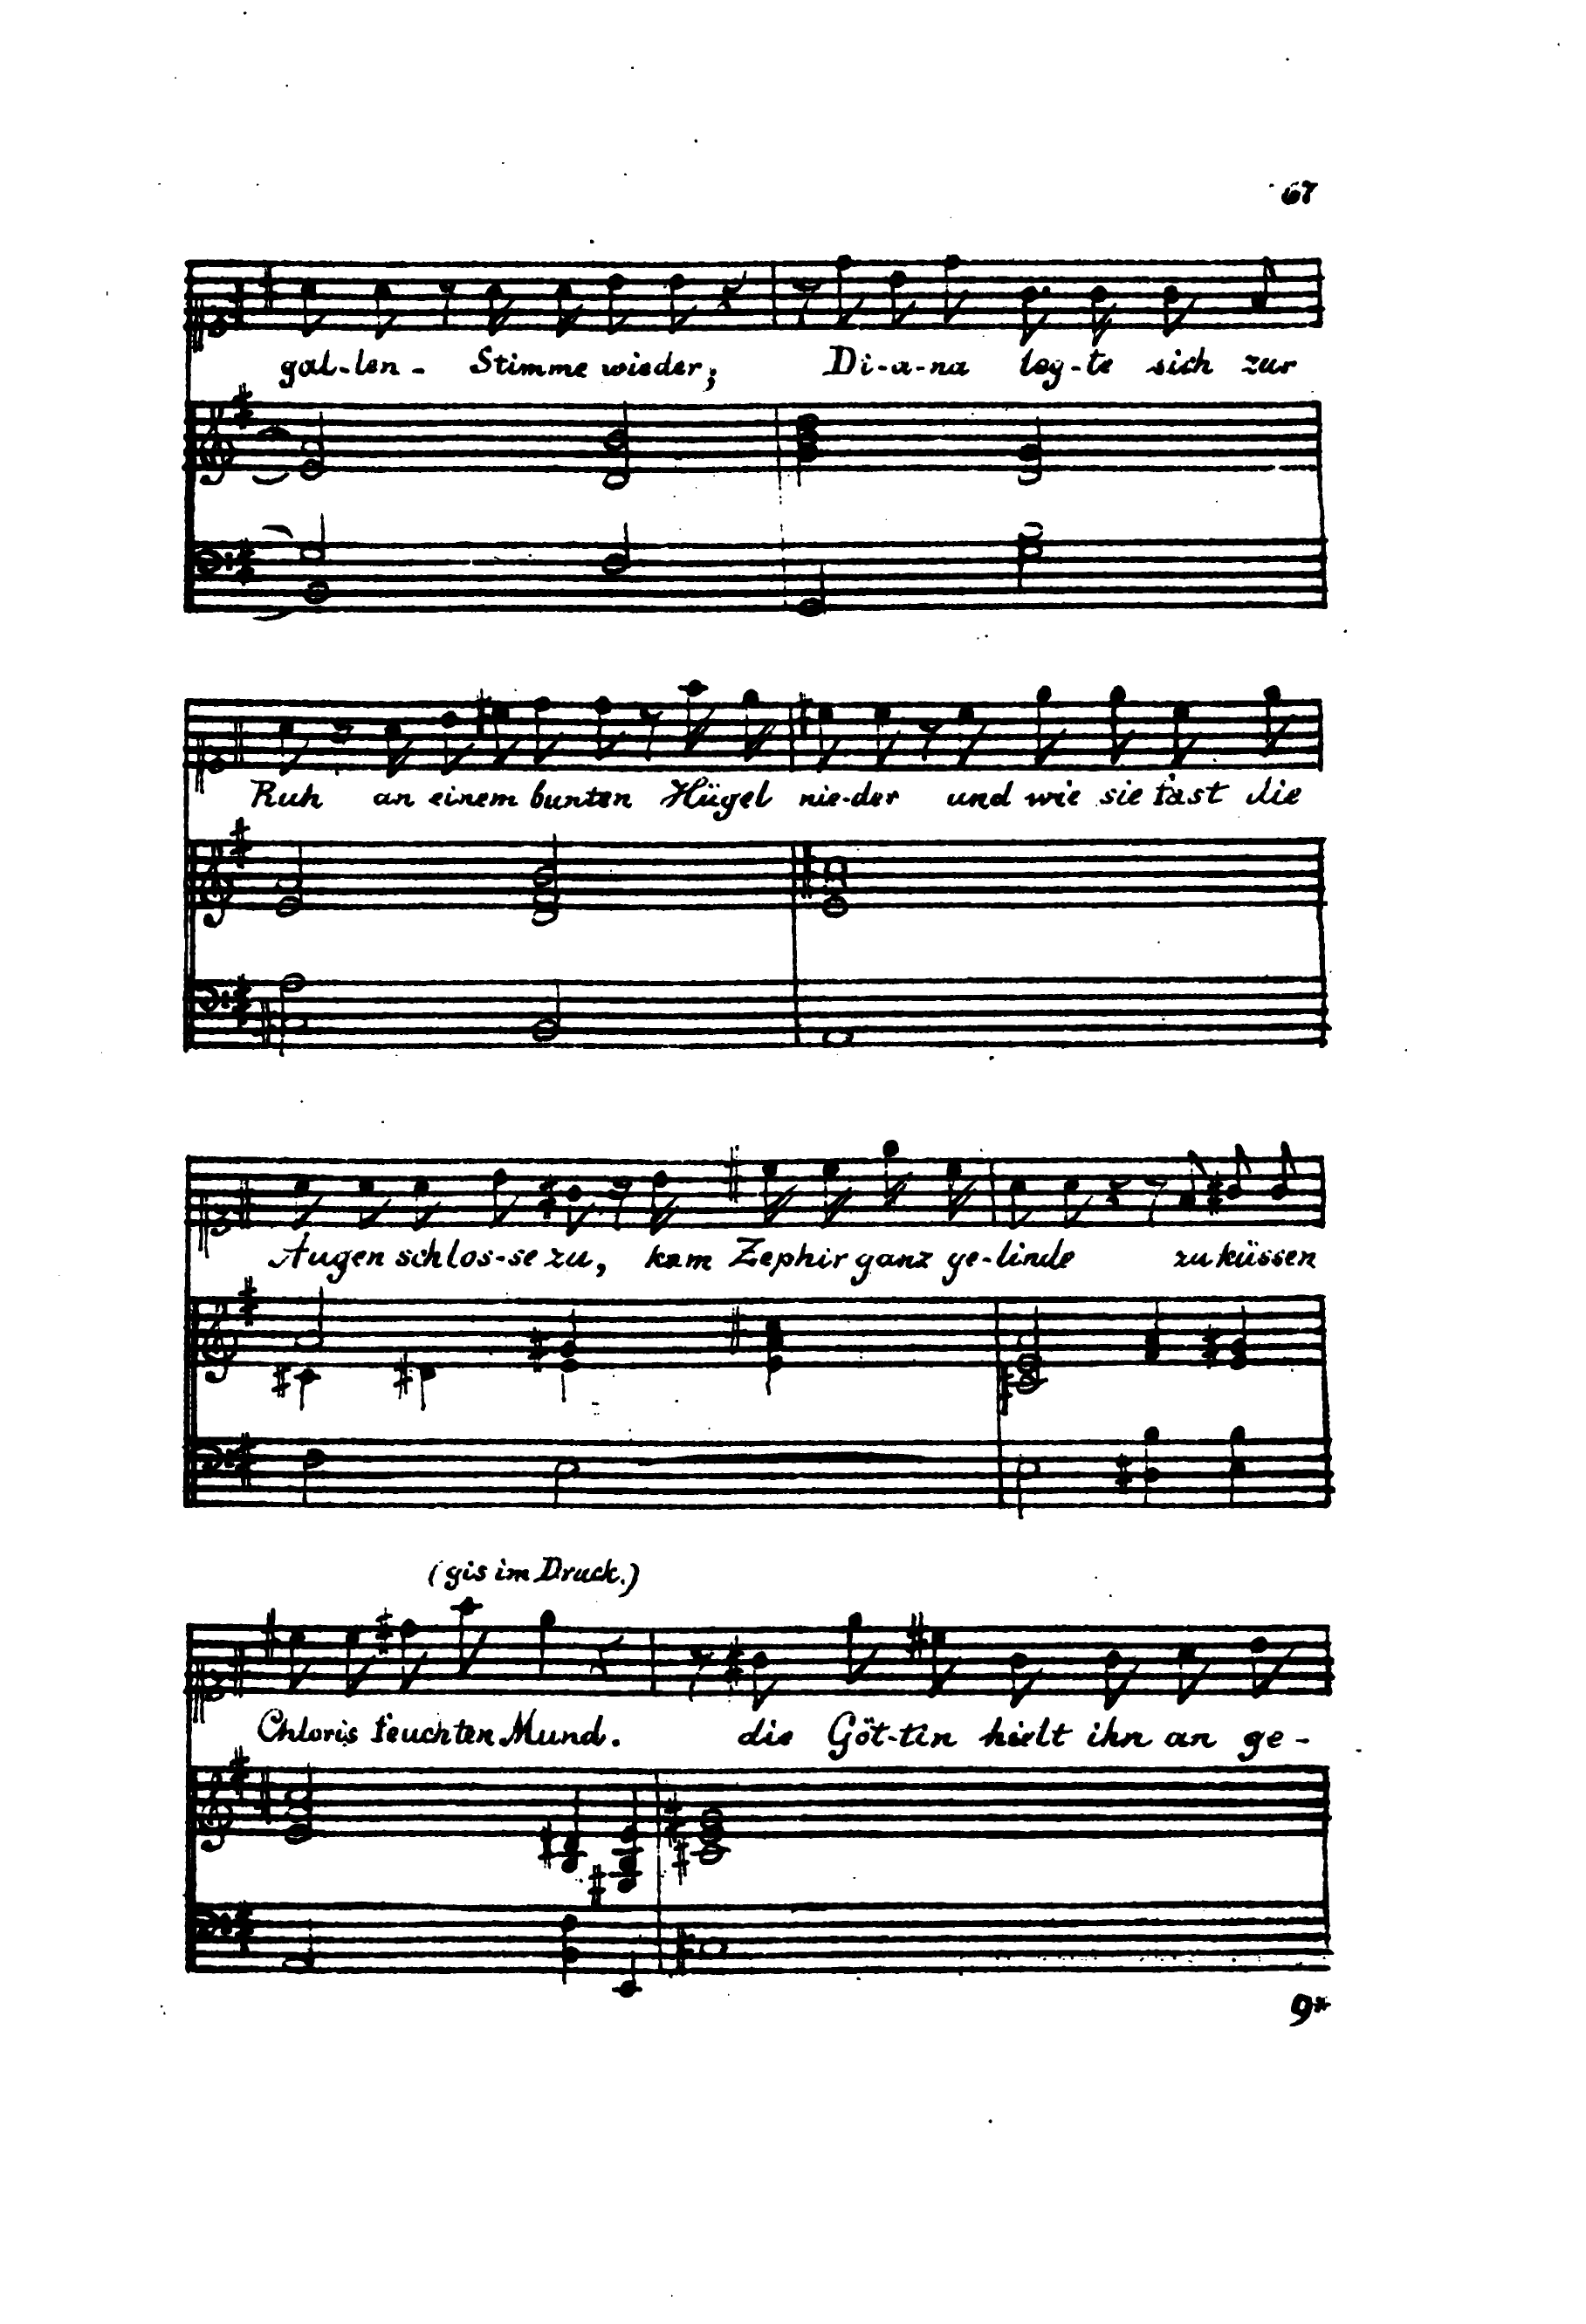 67
gal-len- Stimme wieder; Di-a-na leg-te sich zur
Ruh an einem bunten Hügel nie-der und wie sie fast die
Augen schlos-se zu, kam Zephir ganz ge-linde zu küssen
(gis im Druck.)
Chloris feuchten Mund. die Göt-tin hielt ihn an ge-
9*